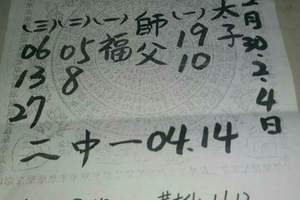 月30.2.4日
太子
(一) 19 10
師父
(一) 福
(二) 05 8
(三) 06 13 27
二 中 一 04.14